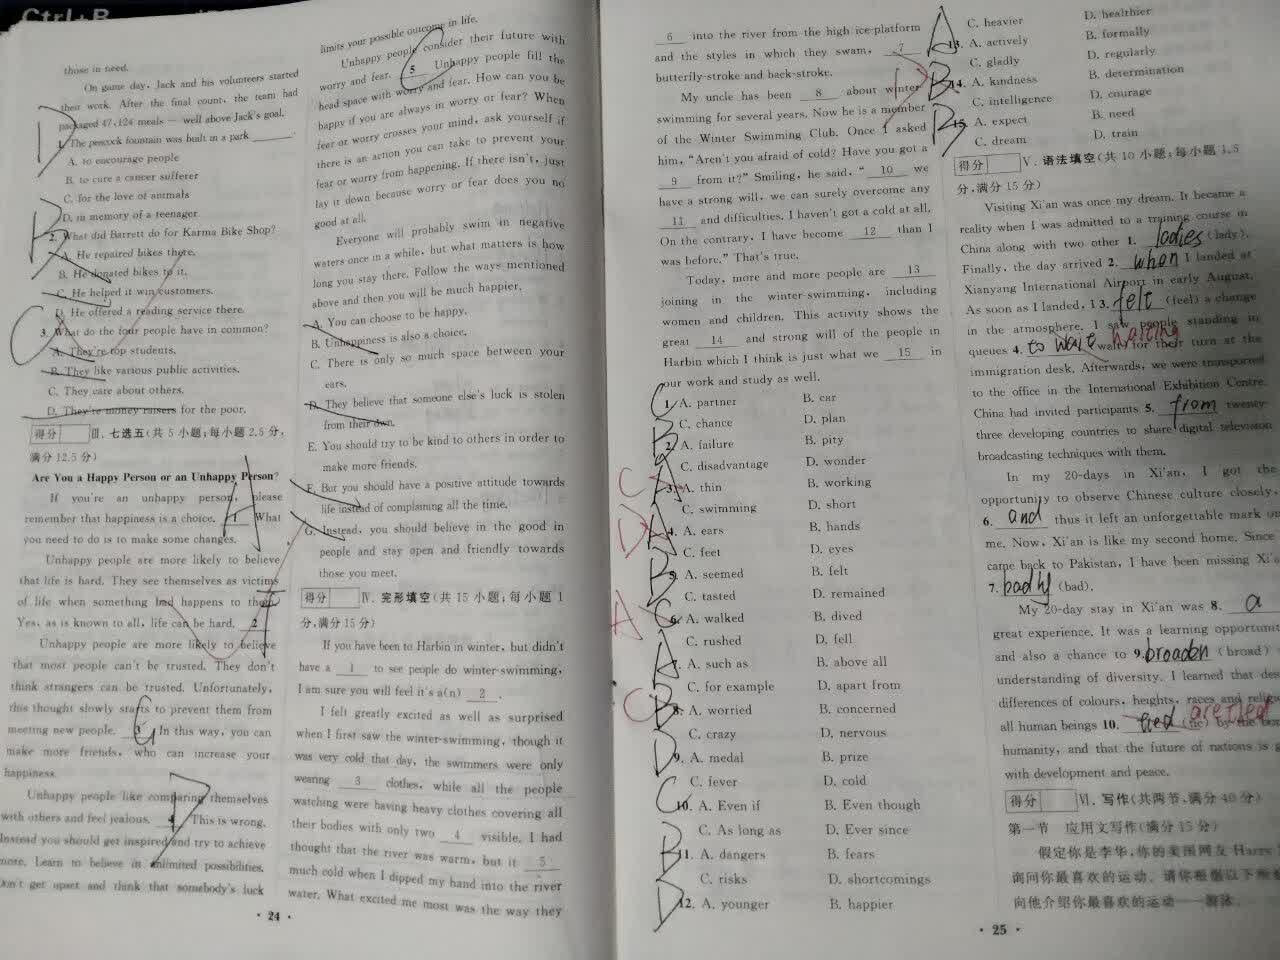 Ctrl+B
those in need.
On game day, Jack and his volunteers started
their work. After the final count, the team had
packaged 47,124 meals — well above Jack's goal.
1. The peacock fountain was built in a park ______.
A. to encourage people
B. to cure a cancer sufferer
C. for the love of animals
D. in memory of a teenager
D
2. What did Barrett do for Karma Bike Shop?
A. He repaired bikes there.
B. He donated bikes to it.
C. He helped it win customers.
D. He offered a reading service there.
B
3. What do the four people have in common?
A. They're top students.
B. They like various public activities.
C. They care about others.
D. They're money raisers for the poor.
C
得分
Ⅲ. 七选五(共 5 小题;每小题 2.5 分,
满分 12.5 分)
Are You a Happy Person or an Unhappy Person?
If you're an unhappy person, please
remember that happiness is a choice. 1 What
you need to do is to make some changes.
Unhappy people are more likely to believe
that life is hard. They see themselves as victims
of life when something bad happens to them.
Yes, as is known to all, life can be hard. 2
Unhappy people are more likely to believe
that most people can't be trusted. They don't
think strangers can be trusted. Unfortunately,
this thought slowly starts to prevent them from
meeting new people. 3 In this way, you can
make more friends, who can increase your
happiness.
Unhappy people like comparing themselves
with others and feel jealous. 4 This is wrong.
Instead you should get inspired and try to achieve
more. Learn to believe in unlimited possibilities.
Don't get upset and think that somebody's luck
A
F
G
D
· 24 ·
limits your possible outcome in life.
Unhappy people consider their future with
worry and fear. 5 Unhappy people fill the
head space with worry and fear. How can you be
happy if you are always in worry or fear? When
fear or worry crosses your mind, ask yourself if
there is an action you can take to prevent your
fear or worry from happening. If there isn't, just
lay it down because worry or fear does you no
good at all.
Everyone will probably swim in negative
waters once in a while, but what matters is how
long you stay there. Follow the ways mentioned
above and then you will be much happier.
A. You can choose to be happy.
B. Unhappiness is also a choice.
C. There is only so much space between your
ears.
D. They believe that someone else's luck is stolen
from their own.
E. You should try to be kind to others in order to
make more friends.
F. But you should have a positive attitude towards
life instead of complaining all the time.
G. Instead, you should believe in the good in
people and stay open and friendly towards
those you meet.
得分
Ⅳ. 完形填空(共 15 小题;每小题 1
分,满分 15 分)
If you have been to Harbin in winter, but didn't
have a 1 to see people do winter-swimming,
I am sure you will feel it's a(n) 2 .
I felt greatly excited as well as surprised
when I first saw the winter-swimming, though it
was very cold that day, the swimmers were only
wearing 3 clothes, while all the people
watching were having heavy clothes covering all
their bodies with only two 4 visible. I had
thought that the river was warm, but it 5
much cold when I dipped my hand into the river
water. What excited me most was the way they
6 into the river from the high ice-platform
and the styles in which they swam, 7
butterfly-stroke and back-stroke.
My uncle has been 8 about winter
swimming for several years. Now he is a member
of the Winter Swimming Club. Once I asked
him, "Aren't you afraid of cold? Have you got a
9 from it?" Smiling, he said, " 10 we
have a strong will, we can surely overcome any
11 and difficulties. I haven't got a cold at all.
On the contrary, I have become 12 than I
was before." That's true.
Today, more and more people are 13
joining in the winter-swimming, including
women and children. This activity shows the
great 14 and strong will of the people in
Harbin which I think is just what we 15 in
our work and study as well.
C 1. A. partner B. car
C. chance D. plan
B 2. A. failure B. pity
C. disadvantage D. wonder
C A 3. A. thin B. working
C. swimming D. short
D A 4. A. ears B. hands
C. feet D. eyes
B 5. A. seemed B. felt
C. tasted D. remained
A C 6. A. walked B. dived
C. rushed D. fell
A 7. A. such as B. above all
C. for example D. apart from
C B 8. A. worried B. concerned
C. crazy D. nervous
D 9. A. medal B. prize
C. fever D. cold
C 10. A. Even if B. Even though
C. As long as D. Ever since
B 11. A. dangers B. fears
C. risks D. shortcomings
D 12. A. younger B. happier
C. heavier D. healthier
A 13. A. actively B. formally
C. gladly D. regularly
B 14. A. kindness B. determination
C. intelligence D. courage
B 15. A. expect B. need
C. dream D. train
得分
Ⅴ. 语法填空(共 10 小题;每小题 1.5
分,满分 15 分)
Visiting Xi'an was once my dream. It became a
reality when I was admitted to a training course in
China along with two other 1. ladies (lady).
Finally, the day arrived 2. when I landed at
Xianyang International Airport in early August.
As soon as I landed, I 3. felt (feel) a change
in the atmosphere. I saw people standing in
queues 4. to wait waiting (wait) for their turn at the
immigration desk. Afterwards, we were transported
to the office in the International Exhibition Centre.
China had invited participants 5. from twenty-
three developing countries to share digital television
broadcasting techniques with them.
In my 20-days in Xi'an, I got the
opportunity to observe Chinese culture closely,
6. and thus it left an unforgettable mark on
me. Now, Xi'an is like my second home. Since
came back to Pakistan, I have been missing Xi'a
7. badly (bad).
My 20-day stay in Xi'an was 8. a
great experience. It was a learning opportunit
and also a chance to 9. broaden (broad)
understanding of diversity. I learned that des
differences of colours, heights, races and relig
all human beings 10. tied are tied (tie) by the
humanity, and that the future of nations is
with development and peace.
得分
Ⅵ. 写作(共两节,满分 40 分)
第一节 应用文写作(满分 15 分)
假定你是李华,你的美国网友 Harry
询问你最喜欢的运动。请你根据以下
向他介绍你最喜欢的运动——游泳。
· 25 ·